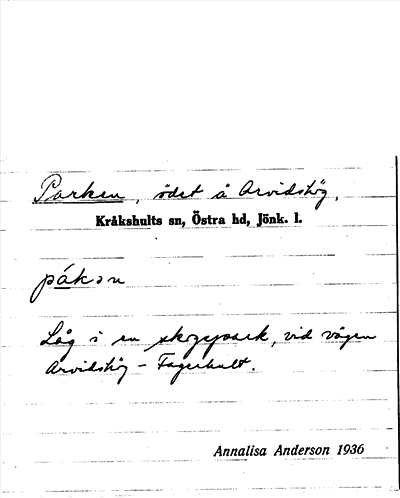 Parken, ödet å Arvidshög,
Kråkshults sn, Östra hd, Jönk. l.
pákən
Låg i en skogspark, vid vägen
Arvidshög - Fagerhult.
Annalisa Anderson 1936